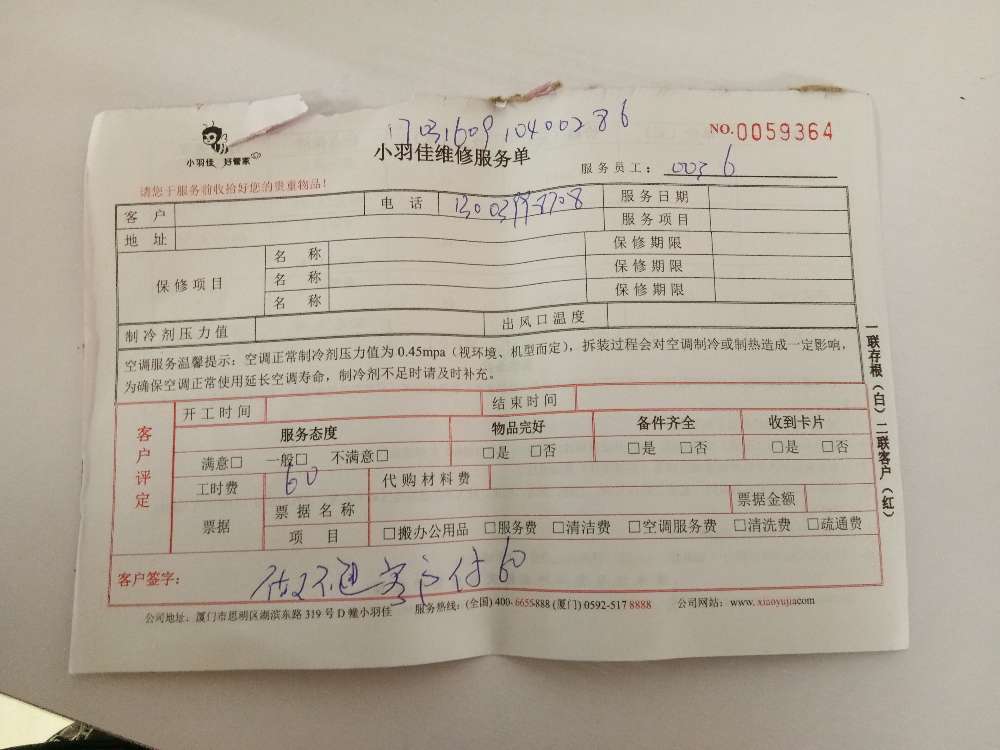 1703160910400286
NO.0059364
小羽佳 好管家
小羽佳维修服务单
服务员工: 0036
请您于服务前收拾好您的贵重物品!
客 户 电 话 服务日期
地 址 服务项目
保修项目 名 称 保修期限
名 称 保修期限
名 称 保修期限
制冷剂压力值 出风口温度
空调服务温馨提示:空调正常制冷剂压力值为 0.45mpa(视环境、机型而定),拆装过程会对空调制冷或制热造成一定影响,
为确保空调正常使用延长空调寿命,制冷剂不足时请及时补充。
客户评定
开工时间 结束时间
服务态度 物品完好 备件齐全 收到卡片
满意□ 一般□ 不满意□ □是 □否 □是 □否 □是 □否
工时费 60 代购材料费
票据 票据名称 票据金额
项 目 □搬办公用品 □服务费 □清洁费 □空调服务费 □清洗费 □疏通费
客户签字: 做不通客户付60
公司地址:厦门市思明区湖滨东路 319 号 D 幢小羽佳 服务热线:(全国) 400-6655888 (厦门) 0592-517 8888 公司网站:www.xiaoyujiacom
一联存根(白)二联客户(红)